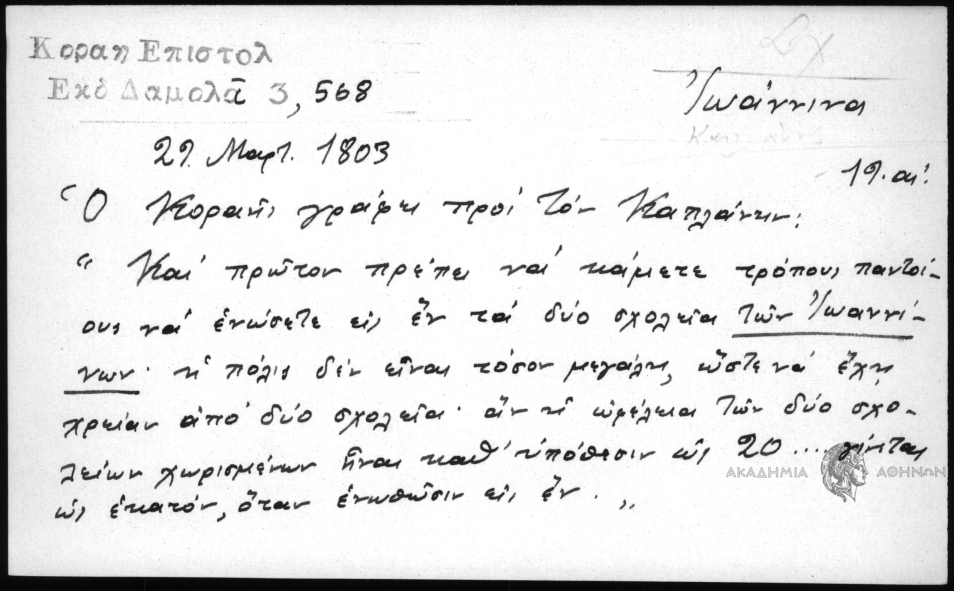 Κοραη Επιστολ
Εκδ Δαμαλᾶ 3, 568
Ἰωάννινα
27. Μαρτ. 1803
19. αἰ.
Ὁ Κοραῆς γράφει πρὸς τὸν Καπλάνην:
“ Καὶ πρῶτον πρέπει νὰ κάμετε τρόπους παντοί-
ους νὰ ἑνώσετε εἰς ἓν τὰ δύο σχολεῖα τῶν Ἰωαννί-
νων· ἡ πόλις δὲν εἶναι τόσον μεγάλη, ὥστε νὰ ἔχῃ
χρείαν ἀπὸ δύο σχολεῖα· ἂν ἡ ὠφέλεια τῶν δύο σχο-
λείων χωρισμένων ἦναι καθ' ὑπόθεσιν ὡς 20 ... γίνεται
ὡς ἑκατόν, ὅταν ἑνωθῶσιν εἰς ἕν. „
ΑΚΑΔΗΜΙΑ ΑΘΗΝΩΝ